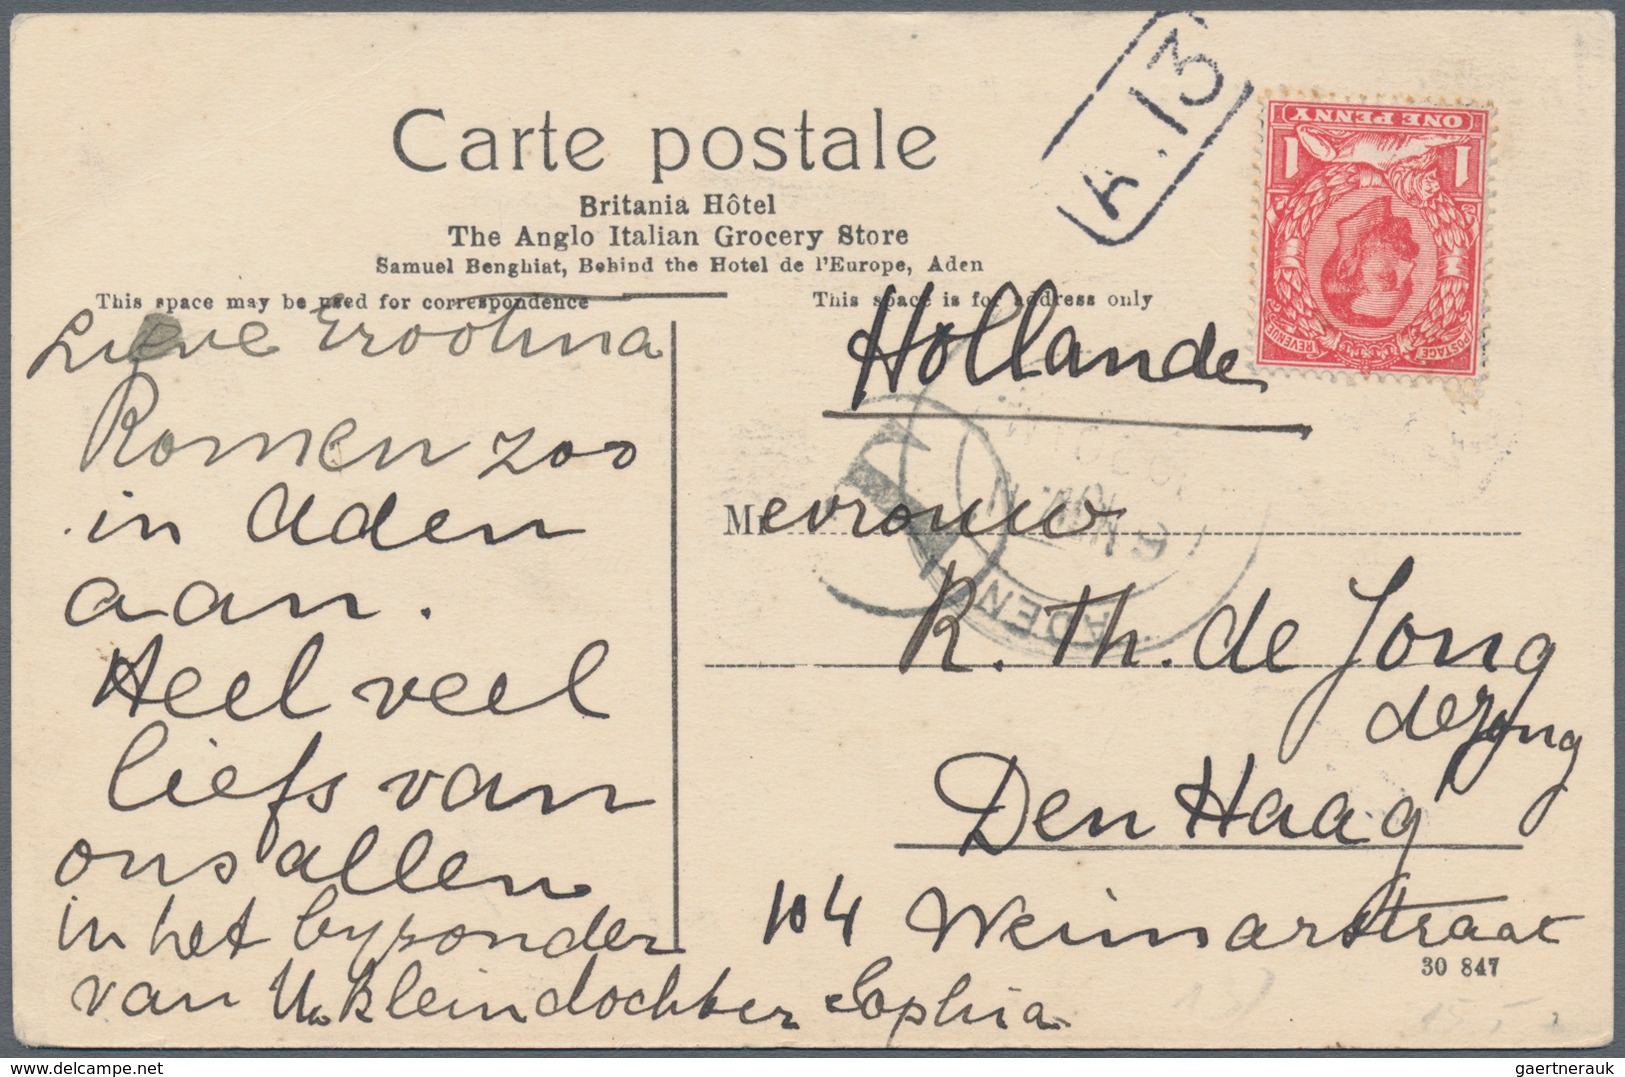 A.13
ONE PENNY
1 1
POSTAGE REVENUE
Carte postale
Britania Hôtel
The Anglo Italian Grocery Store
Samuel Benghiat, Behind the Hotel de l'Europe, Aden
This space may be used for correspondence
This space is for address only
Lieve Grootma
Komen zoo
in Aden
aan.
Heel veel
liefs van
ons allen
in het byzonder
van Uw kleindochter Sophia
Hollande
ADEN
Mevrouw
R. Th. de Jong
de Jong
Den Haag
104 Weimarstraat
30 847
delcampe.net
gaertnerauk